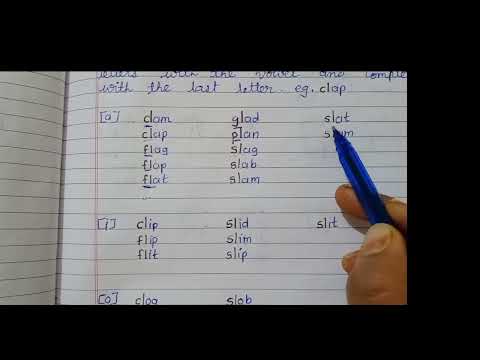 letters with the vowel and comple
with the last letter. eg. clap
[a] clam glad slat
clap plan
flag slag
flap slab
flat slam
[i] clip slid slit
flip slim
flit slip
[o] clog slob